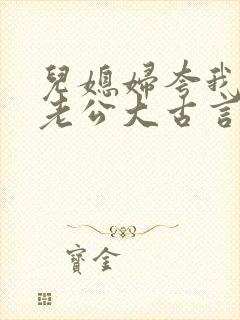 兒媳婦夸我
老公大古言
寶金